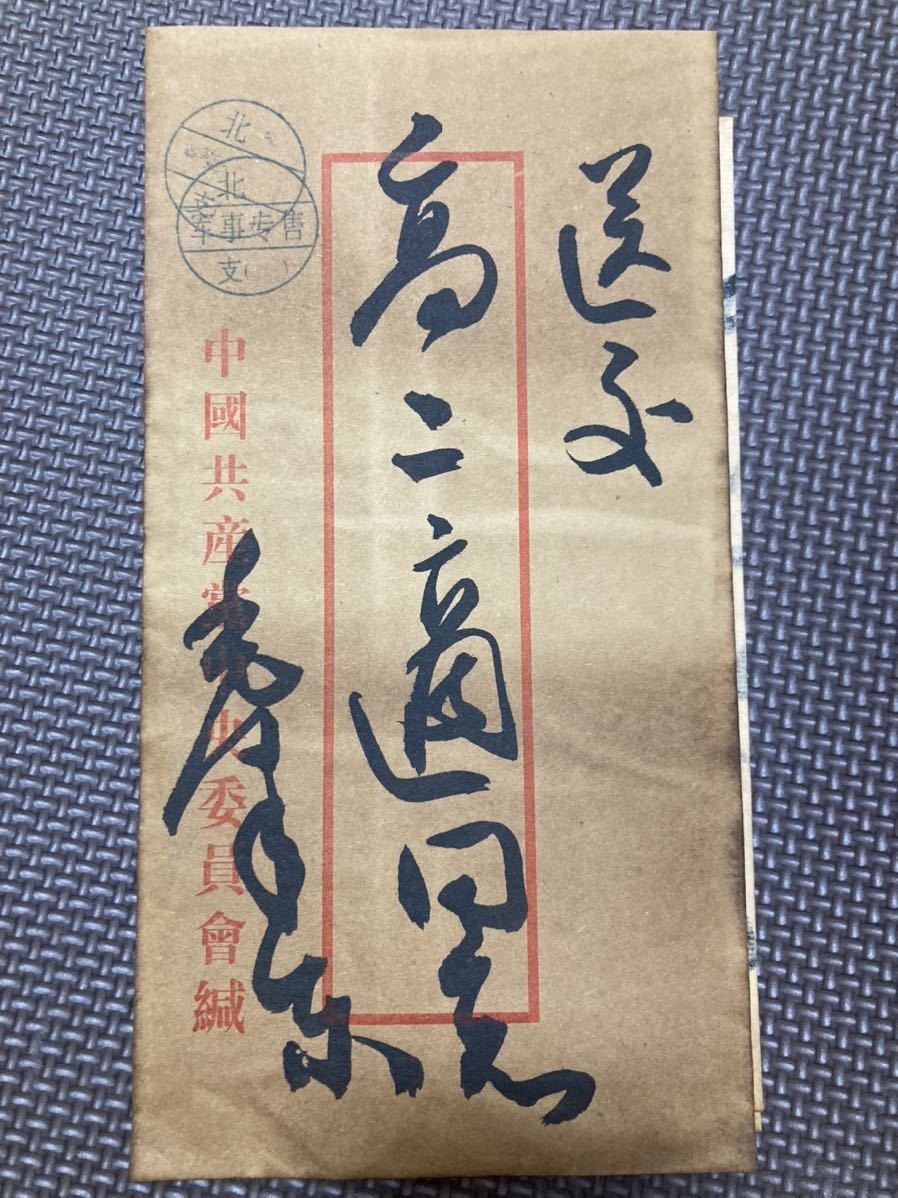 送交
高二適同志
毛泽东
中國共産黨中央委員會緘
北
北
军事专售
支( )